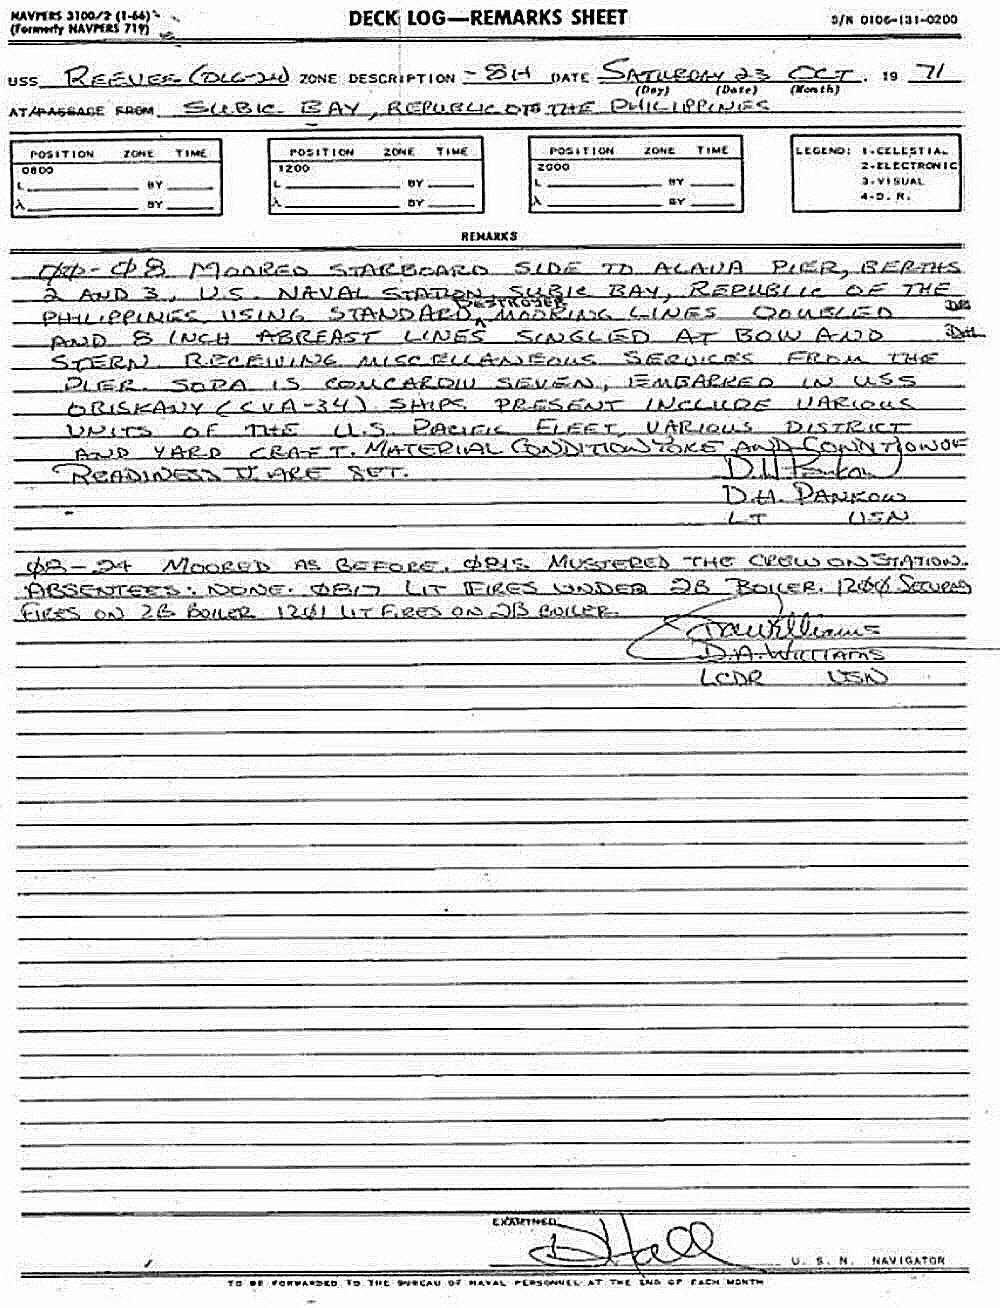 NAVPERS 3100/2 (1-66)
(Formerly NAVPERS 719)
DECK LOG—REMARKS SHEET
S/N 0106-131-0200
USS REEVES (DLG-24) ZONE DESCRIPTION -8H DATE SATURDAY 23 OCT. 19 71
(Day) (Date) (Month)
AT/PASSAGE FROM SUBIC BAY, REPUBLIC OF THE PHILIPPINES
POSITION ZONE TIME
0800
L BY
λ BY
POSITION ZONE TIME
1200
L BY
λ BY
POSITION ZONE TIME
2000
L BY
λ BY
LEGEND: 1-CELESTIAL
2-ELECTRONIC
3-VISUAL
4-D. R.
REMARKS
00-08 MOORED STARBOARD SIDE TO ALAVA PIER, BERTHS
2 AND 3, U.S. NAVAL STATION SUBIC BAY, REPUBLIC OF THE
PHILIPPINES USING STANDARD DESTROYER MOORING LINES DOUBLED
AND 8 INCH ABREAST LINES SINGLED AT BOW AND
STERN. RECEIVING MISCELLANEOUS SERVICES FROM THE
PIER. SOPA IS COMCARDIV SEVEN, EMBARKED IN USS
ORISKANY (CVA-34). SHIPS PRESENT INCLUDE VARIOUS
UNITS OF THE U.S. PACIFIC FLEET, VARIOUS DISTRICT
AND YARD CRAFT. MATERIAL CONDITION YOKE AND CONDITION OF
READINESS V ARE SET.
D.H. Pankow
D.H. PANKOW
LT USN
08-24 MOORED AS BEFORE. 0815 MUSTERED THE CREW ON STATION.
ABSENTEES: NONE. 0817 LIT FIRES UNDER 2B BOILER. 1200 SECURED
FIRES ON 2B BOILER 1201 LIT FIRES ON 2B BOILER.
D.A. Williams
D.A. WILLIAMS
LCDR USN
EXAMINED
D Hall
U. S. N. NAVIGATOR
TO BE FORWARDED TO THE BUREAU OF NAVAL PERSONNEL AT THE END OF EACH MONTH